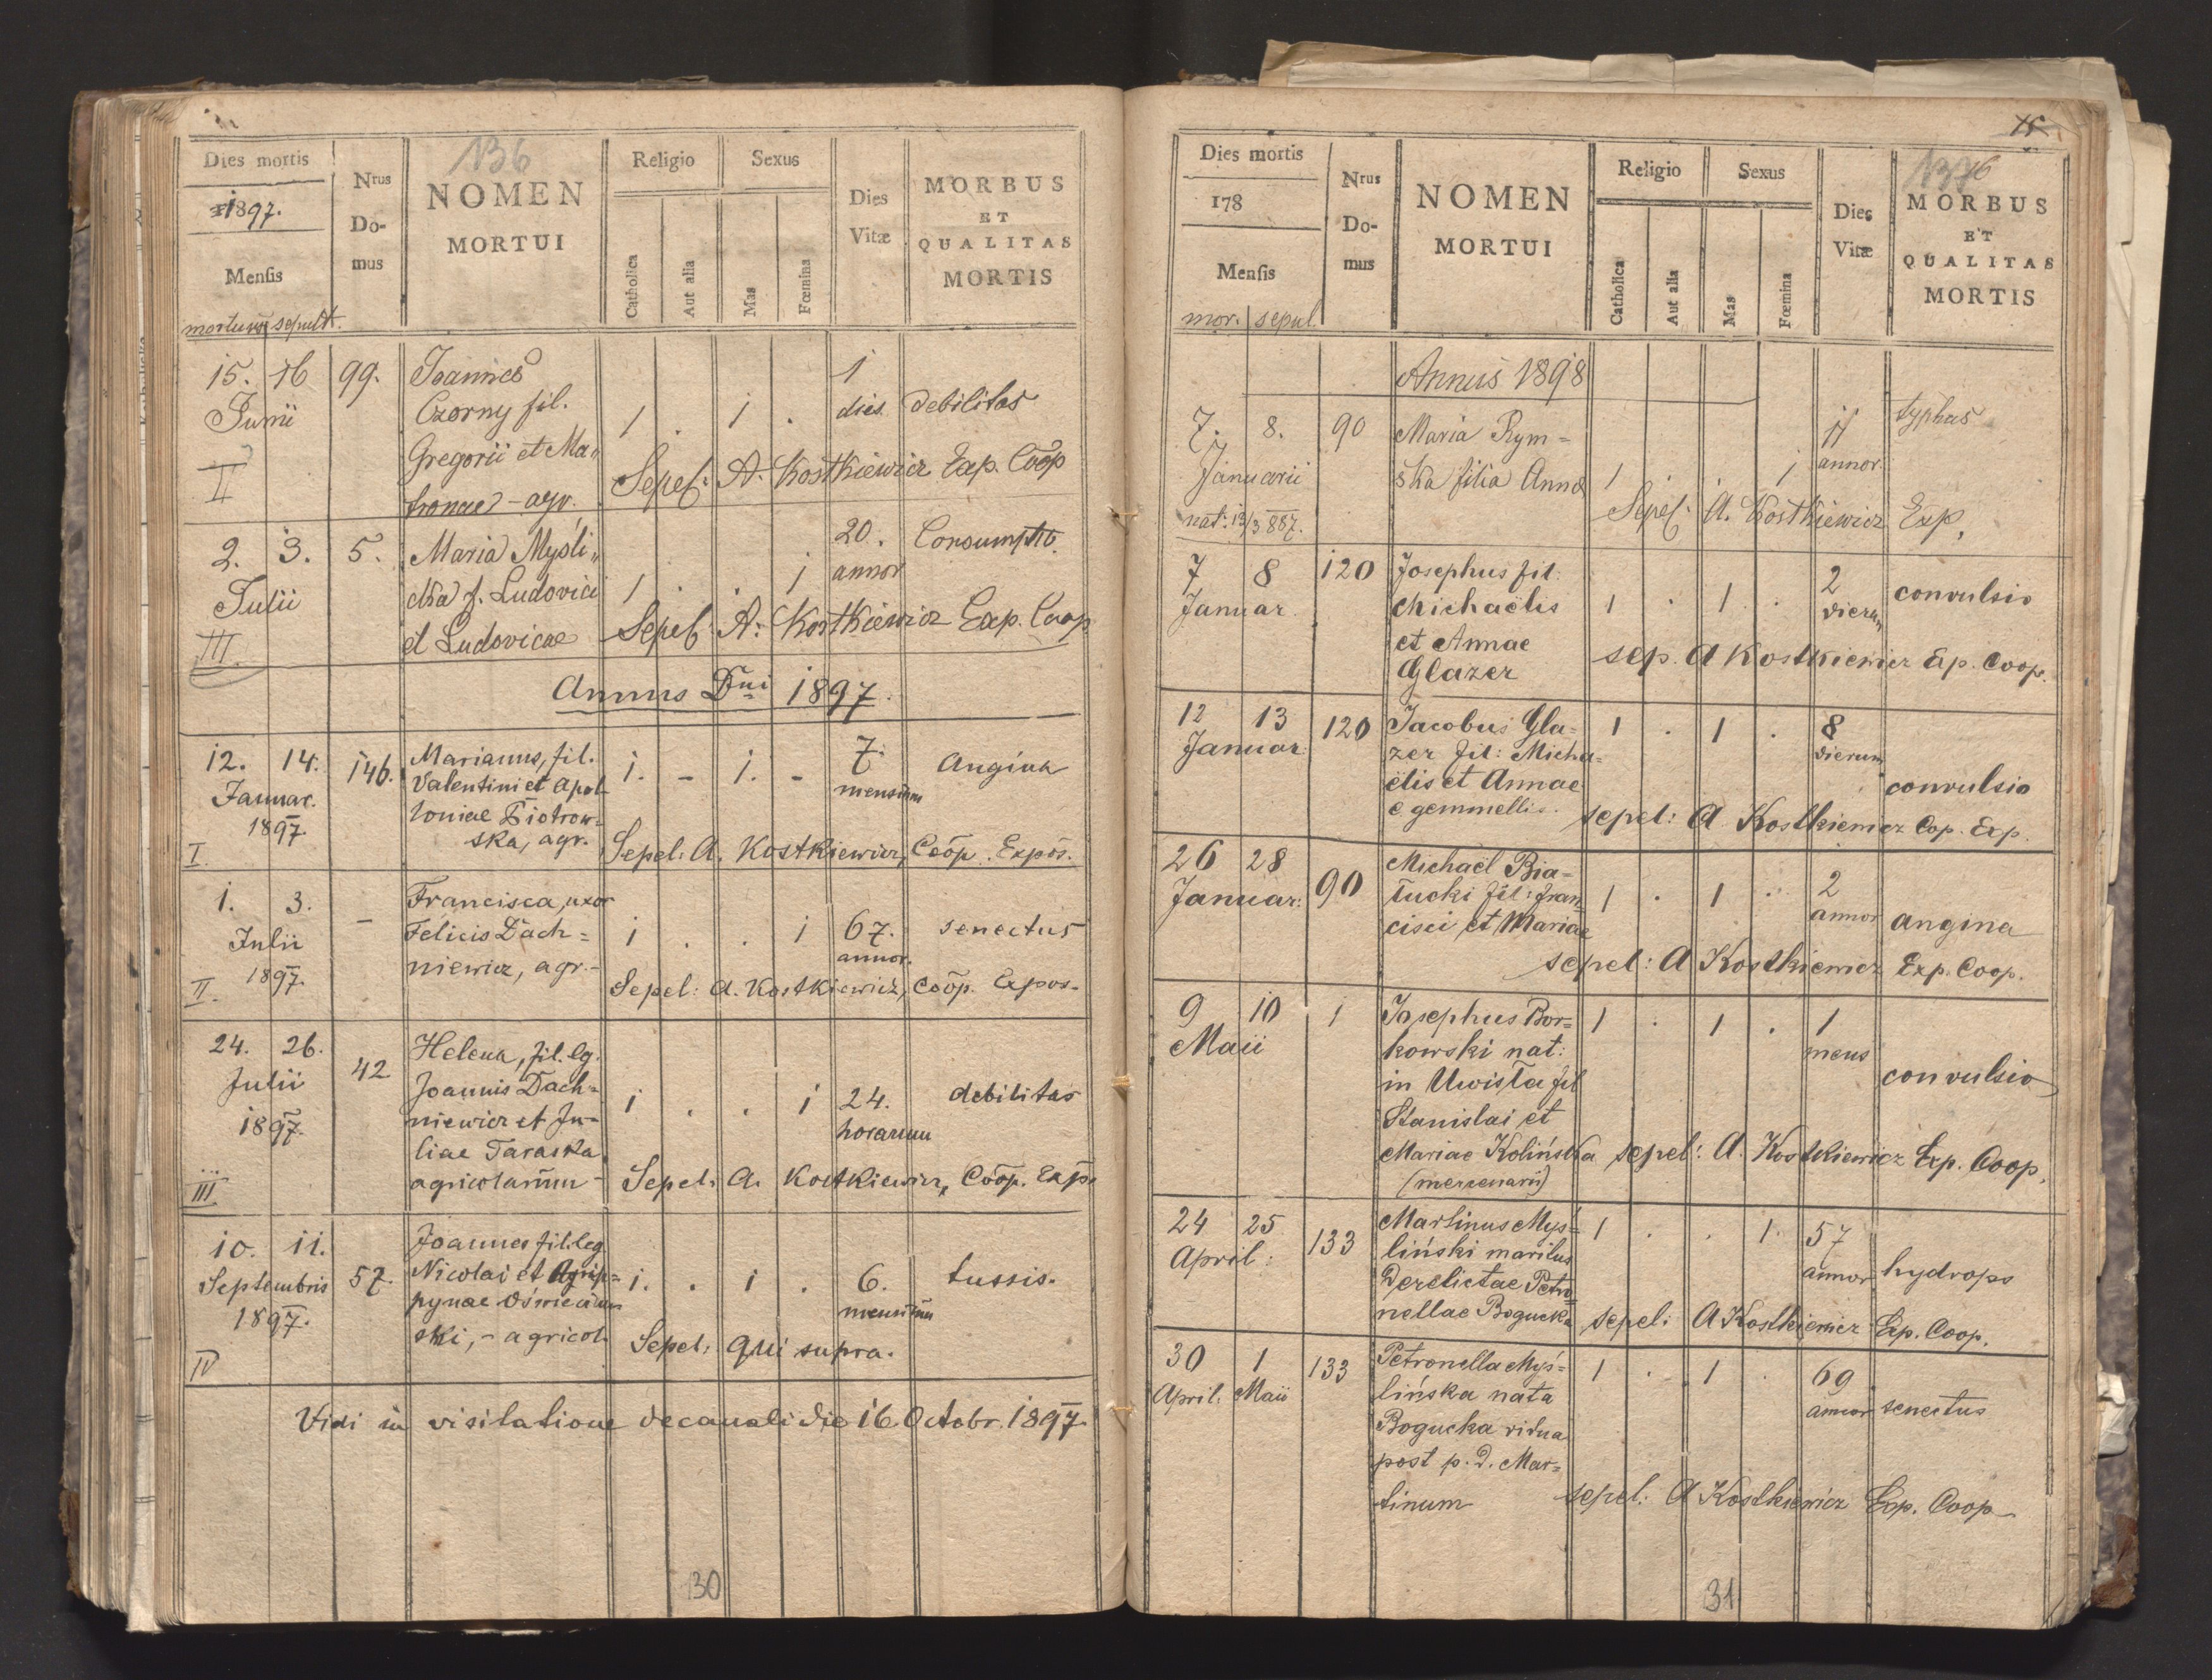 136
Dies mortis
1897.
Mensis
mortuus sepult.
Nrus
Do-
mus
NOMEN
MORTUI
Religio
Catholica
Aut alia
Sexus
Mas
Fœmina
Dies
Vitæ
MORBUS
ET
QUALITAS
MORTIS
15. 16 99. Joannes 1
Junii Czorny fil. 1 . 1 . dies debilitas
Gregorii et Ma„
II tronae - agr. Sepel: A. Kostkiewicz Exp. Coop
2. 3. 5. Maria Myśli„ 20. Consumptio
Julii cka f. Ludovici 1 . . 1 annor
III et Ludovicae Sepel: A: Kostkiewicz Exp. Coop
Annus Dni 1897.
12. 14. 146. Marianus, fil. 1. - 1. - 7. Angina
Januar. Valentini et Apol- mensium
1897. loniae Piotrow-
I. ska, agr. Sepel: A. Kostkiewicz, Coop. Expos.
1. 3. - Francisca, uxor
Julii Felicis Dach= 1 . . 1 67. senectus
1897. niewicz, agr.- annor.
II. Sepel: A. Kostkiewicz, Coop. Expos.
24. 26. 42 Helena, fil. lg.
Julii Joannis Dach= 1 . . 1 24. debilitas
1897. niewicz et Ju- horarum
liae Taraska
III agricolarum - Sepel: A. Kostkiewicz, Coop. Exp.
10. 11. 57. Joannes fil. leg.
Septembris Nicolai et Agrip= 1. . 1 . 6. tussis.
1897. pynae mensium
ski, - agricol. Sepel: qui supra.
IV
Vidi in visitatione decanali die 16. Octobr. 1897.
130
15
1376
Dies mortis
178
Mensis
mor. sepul.
Nrus
Do-
mus
NOMEN
MORTUI
Religio
Catholica
Aut alia
Sexus
Mas
Fœmina
Dies
Vitæ
MORBUS
ET
QUALITAS
MORTIS
Annus 1898
7. 8. 90 Maria Rym= 11 typhus
Januarii ska filia Annae 1 . . 1 annor.
nat: 13/3 887. Sepel: A. Kostkiewicz Exp,
7 8 120 Josephus fil: 2 convulsio
Januar. Michaëlis 1 . 1 . dierum
et Annae
Glazer sep. A Kostkiewicz Exp. Coop.
12 13 120 Jacobus Gla= 1 . 1 . 8
Januar: zer fil: Micha= dierum
ëlis et Annae convulsio
e gemmellis. sepel: A Kostkiewicz Cop. Exp.
26 28 90 Michaël Bia=
Januar: łucki fil: Fran 1 . 1 . 2
cisci et Mariae annor angina
sepel: A Kostkiewicz Exp. Coop.
9 10 1 Josephus Bor= 1 . 1 . 1
Maii kowski nat: mens
in Uwisła fil convulsio
Stanislai et
Mariae Kolińska sepel: A. Kostkiewicz Exp. Coop.
(mercenarii)
24 25 133 Martinus Myś= 1 . . 1. 57
April: liński maritus annor hydrops
Derelictae Petro=
nellae Bogucka sepel: A Kostkiewicz Exp. Coop.
30 1 133 Petronella Myś= 1 . 1 . 69
April. Maii lińska nata annor senectus
Bogucka vidua
post p. d. Mar=
tinum sepel: A Kostkiewicz Exp. Coop
131